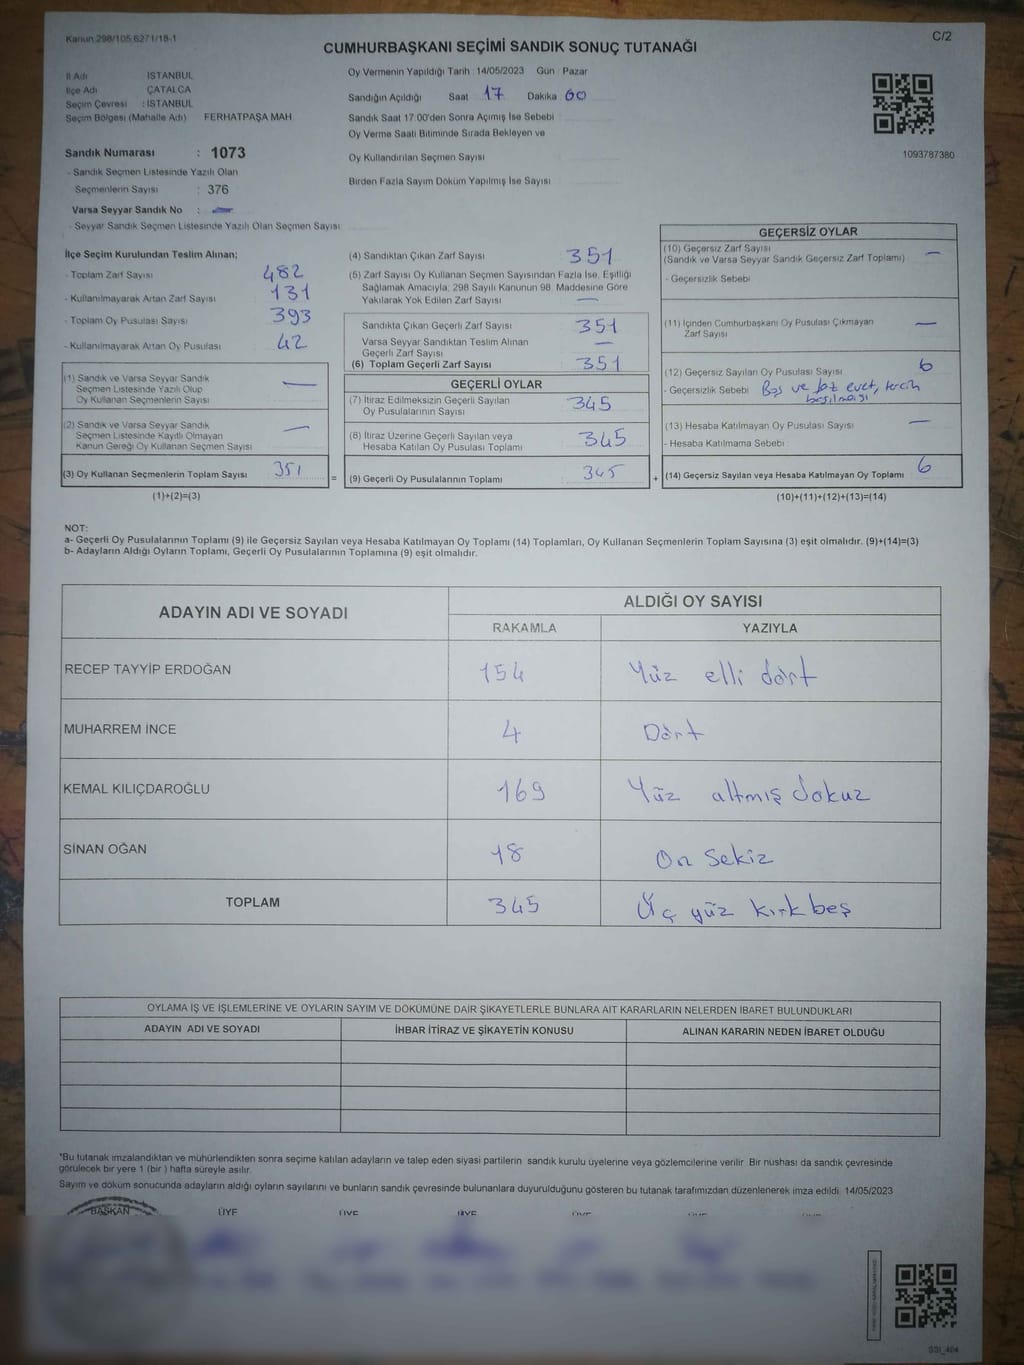 Kanun 298/105 6271/18-1
C/2
CUMHURBAŞKANI SEÇİMİ SANDIK SONUÇ TUTANAĞI
İl Adı İSTANBUL
İlçe Adı ÇATALCA
Seçim Çevresi : İSTANBUL
Seçim Bölgesi (Mahalle Adı) FERHATPAŞA MAH.
Sandık Numarası : 1073
- Sandık Seçmen Listesinde Yazılı Olan
Seçmenlerin Sayısı : 376
Varsa Seyyar Sandık No : —
- Seyyar Sandık Seçmen Listesinde Yazılı Olan Seçmen Sayısı
Oy Vermenin Yapıldığı Tarih : 14/05/2023 Gün : Pazar
Sandığın Açıldığı Saat 17 Dakika 60
Sandık Saat 17:00'den Sonra Açımış İse Sebebi
Oy Verme Saati Bitiminde Sırada Bekleyen ve
Oy Kullandırılan Seçmen Sayısı
Birden Fazla Sayım Döküm Yapılmış İse Sayısı
1093787380
İlçe Seçim Kurulundan Teslim Alınan;
- Toplam Zarf Sayısı 482
- Kullanılmayarak Artan Zarf Sayısı 131
- Toplam Oy Pusulası Sayısı 393
- Kullanılmayarak Artan Oy Pusulası 42
(1) Sandık ve Varsa Seyyar Sandık
Seçmen Listesinde Yazılı Olup
Oy Kullanan Seçmenlerin Sayısı —
(2) Sandık ve Varsa Seyyar Sandık
Seçmen Listesinde Kayıtlı Olmayan
Kanun Gereği Oy Kullanan Seçmen Sayısı —
(3) Oy Kullanan Seçmenlerin Toplam Sayısı 351
(1)+(2)=(3)
=
(4) Sandıktan Çıkan Zarf Sayısı 351
(5) Zarf Sayısı Oy Kullanan Seçmen Sayısından Fazla İse, Eşitliği
Sağlamak Amacıyla; 298 Sayılı Kanunun 98. Maddesine Göre
Yakılarak Yok Edilen Zarf Sayısı —
Sandıkta Çıkan Geçerli Zarf Sayısı 351
Varsa Seyyar Sandıktan Teslim Alınan
Geçerli Zarf Sayısı —
(6) Toplam Geçerli Zarf Sayısı 351
GEÇERLİ OYLAR
(7) İtiraz Edilmeksizin Geçerli Sayılan
Oy Pusulalarının Sayısı 345
(8) İtiraz Üzerine Geçerli Sayılan veya
Hesaba Katılan Oy Pusulası Toplamı 345
(9) Geçerli Oy Pusulalarının Toplamı 345
+
GEÇERSİZ OYLAR
(10) Geçersiz Zarf Sayısı
(Sandık ve Varsa Seyyar Sandık Geçersiz Zarf Toplamı) —
- Geçersizlik Sebebi
(11) İçinden Cumhurbaşkanı Oy Pusulası Çıkmayan
Zarf Sayısı —
(12) Geçersiz Sayılan Oy Pusulası Sayısı 6
- Geçersizlik Sebebi Boş ve evet, tercih
(13) Hesaba Katılmayan Oy Pusulası Sayısı —
- Hesaba Katılmama Sebebi :
(14) Geçersiz Sayılan veya Hesaba Katılmayan Oy Toplamı 6
(10)+(11)+(12)+(13)=(14)
NOT:
a- Geçerli Oy Pusulalarının Toplamı (9) ile Geçersiz Sayılan veya Hesaba Katılmayan Oy Toplamı (14) Toplamları, Oy Kullanan Seçmenlerin Toplam Sayısına (3) eşit olmalıdır. (9)+(14)=(3)
b- Adayların Aldığı Oyların Toplamı, Geçerli Oy Pusulalarının Toplamına (9) eşit olmalıdır.
ADAYIN ADI VE SOYADI
ALDIĞI OY SAYISI
RAKAMLA YAZIYLA
RECEP TAYYİP ERDOĞAN 154 Yüz elli dört
MUHARREM İNCE 4 Dört
KEMAL KILIÇDAROĞLU 169 Yüz altmış dokuz
SİNAN OĞAN 18 On sekiz
TOPLAM 345 Üç yüz kırk beş
OYLAMA İŞ VE İŞLEMLERİNE VE OYLARIN SAYIM VE DÖKÜMÜNE DAİR ŞİKAYETLERLE BUNLARA AİT KARARLARIN NELERDEN İBARET BULUNDUKLARI
ADAYIN ADI VE SOYADI İHBAR İTİRAZ VE ŞİKAYETİN KONUSU ALINAN KARARIN NEDEN İBARET OLDUĞU
*Bu tutanak imzalandıktan ve mühürlendikten sonra seçime katılan adayların ve talep eden siyasi partilerin sandık kurulu üyelerine veya gözlemcilerine verilir. Bir nüshası da sandık çevresinde
görülecek bir yere 1 (bir ) hafta süreyle asılır.
Sayım ve döküm sonucunda adayların aldığı oyların sayılarını ve bunların sandık çevresinde bulunanlara duyurulduğunu gösteren bu tutanak tarafımızdan düzenlenerek imza edildi. 14/05/2023
BAŞKAN ÜYE ÜYE ÜYE
SSI_404